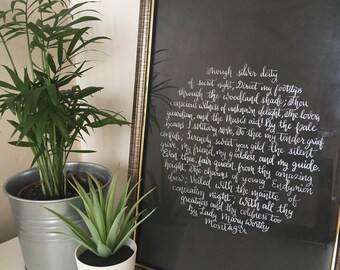 Though silver deity
of secret night, Direct my footsteps
through the woodland shade; Thou
conscious witness of unknown delight, The Lovers
guardian, and the Muse's aid! By the pale
beams I solitary rove, To thee my tender grief
confide; Serenely sweet you gild the silent
grove, My friend, my goddess, and my guide.
Even thee, fair queen, from thy amazing
height, The charms of young Endymion
drew; Veiled with the mantle of
concealing night; With all thy
greatness and thy coldness too
By Lady Mary Wortley
Montagu